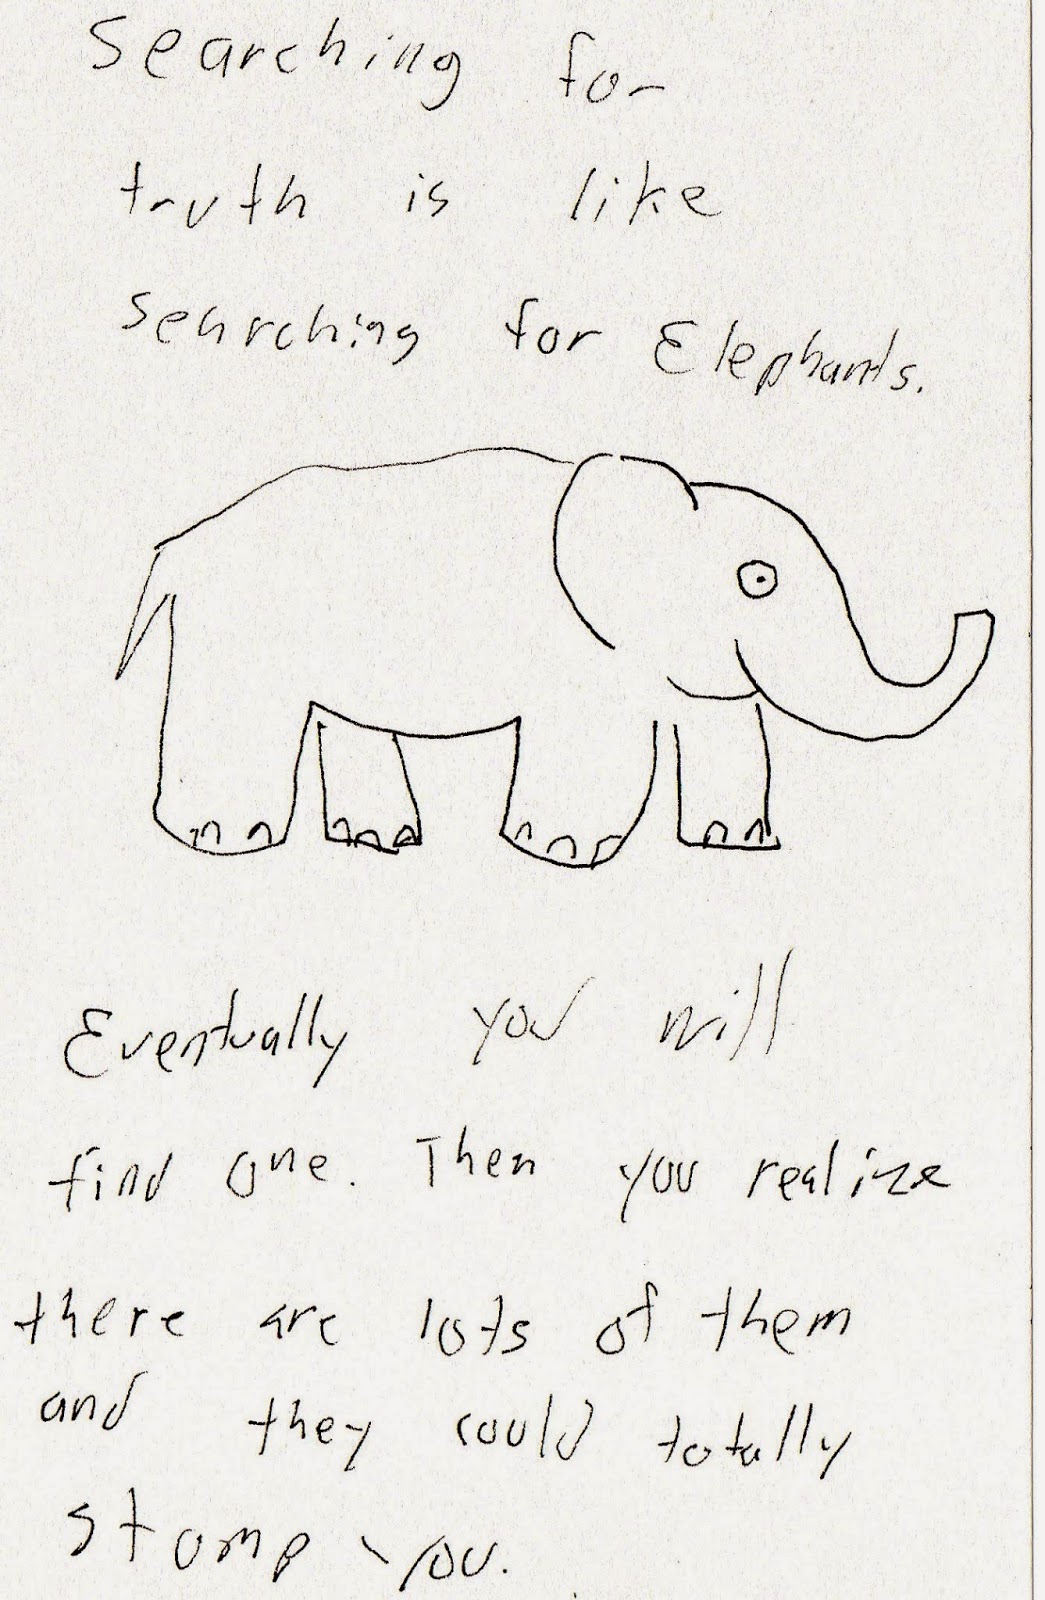 Searching for
truth is like
searching for Elephants.
Eventually you will
find one. Then you realize
there are lots of them
and they could totally
stomp you.